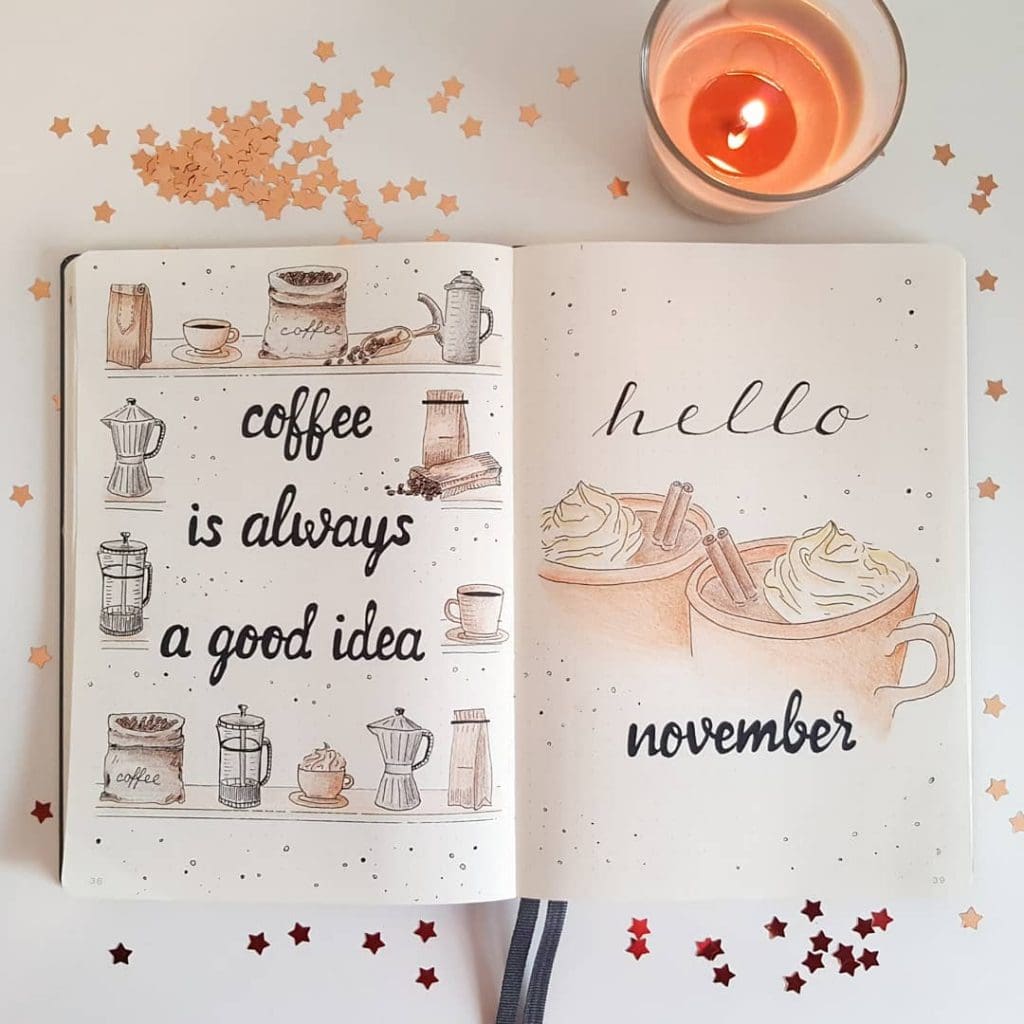 coffee
coffee
is always
a good idea
coffee
38
hello
november
39